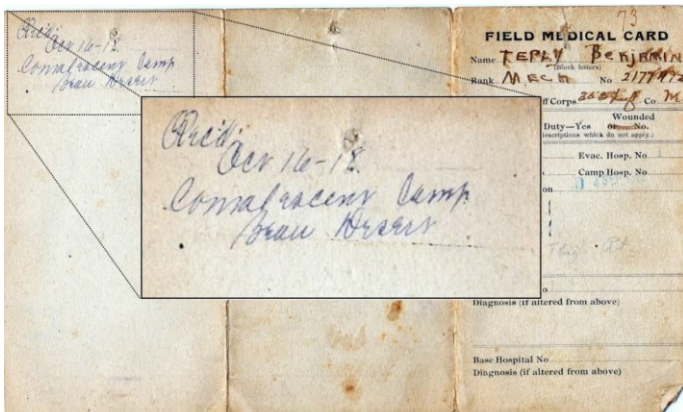 Oct 16-18.
Convalescent Camp
Beau Desert
Oct 16-18.
Convalescent Camp
Beau Desert
73
FIELD MEDICAL CARD
Name TEPLY BENJAMIN
(Block letters)
Rank MECH No
ff Corps Co M
Wounded
Duty—Yes or No.
escriptions which do not apply.)
Evac. Hosp. No
Camp Hosp. No
on
Diagnosis (if altered from above)
Base Hospital No
Diagnosis (if altered from above)